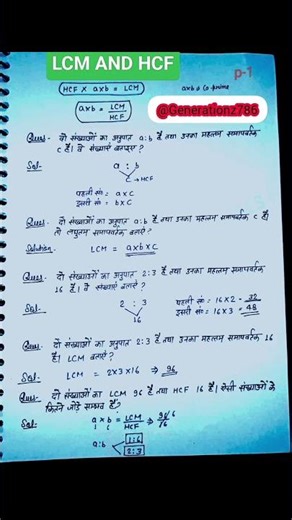 LCM AND HCF
p-1
HCF × a×b = LCM
a×b = co prime
a×b = LCM/HCF
@Generationz786
Ques- दो संख्याओं का अनुपात a:b है तथा उनका महत्तम समापवर्तक
c है। वे संख्याएं बताइए?
Sol-
a : b
c → HCF
पहली सं० = a×c
दूसरी सं० = b×c
Ques- दो संख्याओं का अनुपात a:b है तथा उनका महत्तम समापवर्तक c है।
तो लघुत्तम समापवर्तक बताएं?
Solution
LCM = a×b×c
Ques- दो संख्याओं का अनुपात 2:3 है तथा उनका महत्तम समापवर्तक
16 है। वे संख्याएं बताएं?
Sol-
2 : 3
16
पहली सं० = 16×2 = 32
दूसरी सं० = 16×3 = 48
Ques- दो संख्याओं का अनुपात 2:3 है तथा उनका महत्तम समापवर्तक 16
है। LCM बताएं?
Sol-
LCM = 2×3×16 ⇒ 96
Ques- दो संख्याओं का LCM 96 है तथा HCF 16 है। ऐसी संख्याओं के
कितने जोड़े सम्भव हैं?
Sol-
a × b = LCM/HCF ⇒ 96/16 6
a:b
1:6
2:3